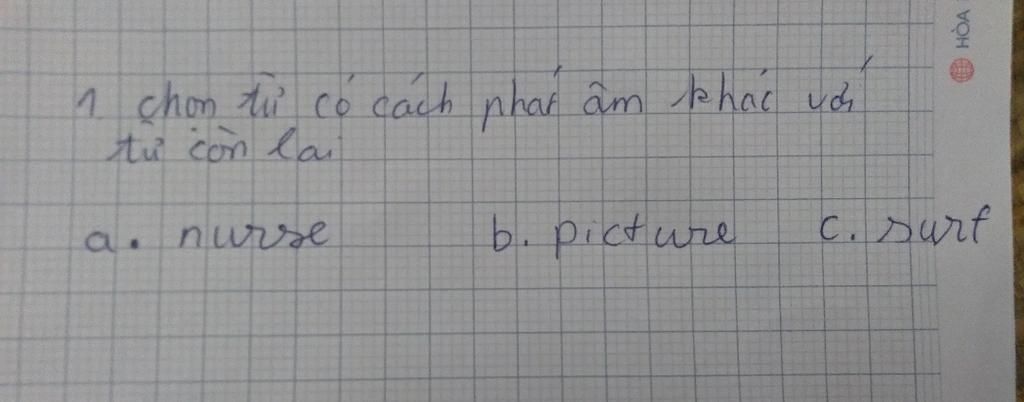 1 chọn từ có cách phát âm khác với
từ còn lại
a. nurse b. picture c. surf
HÒA